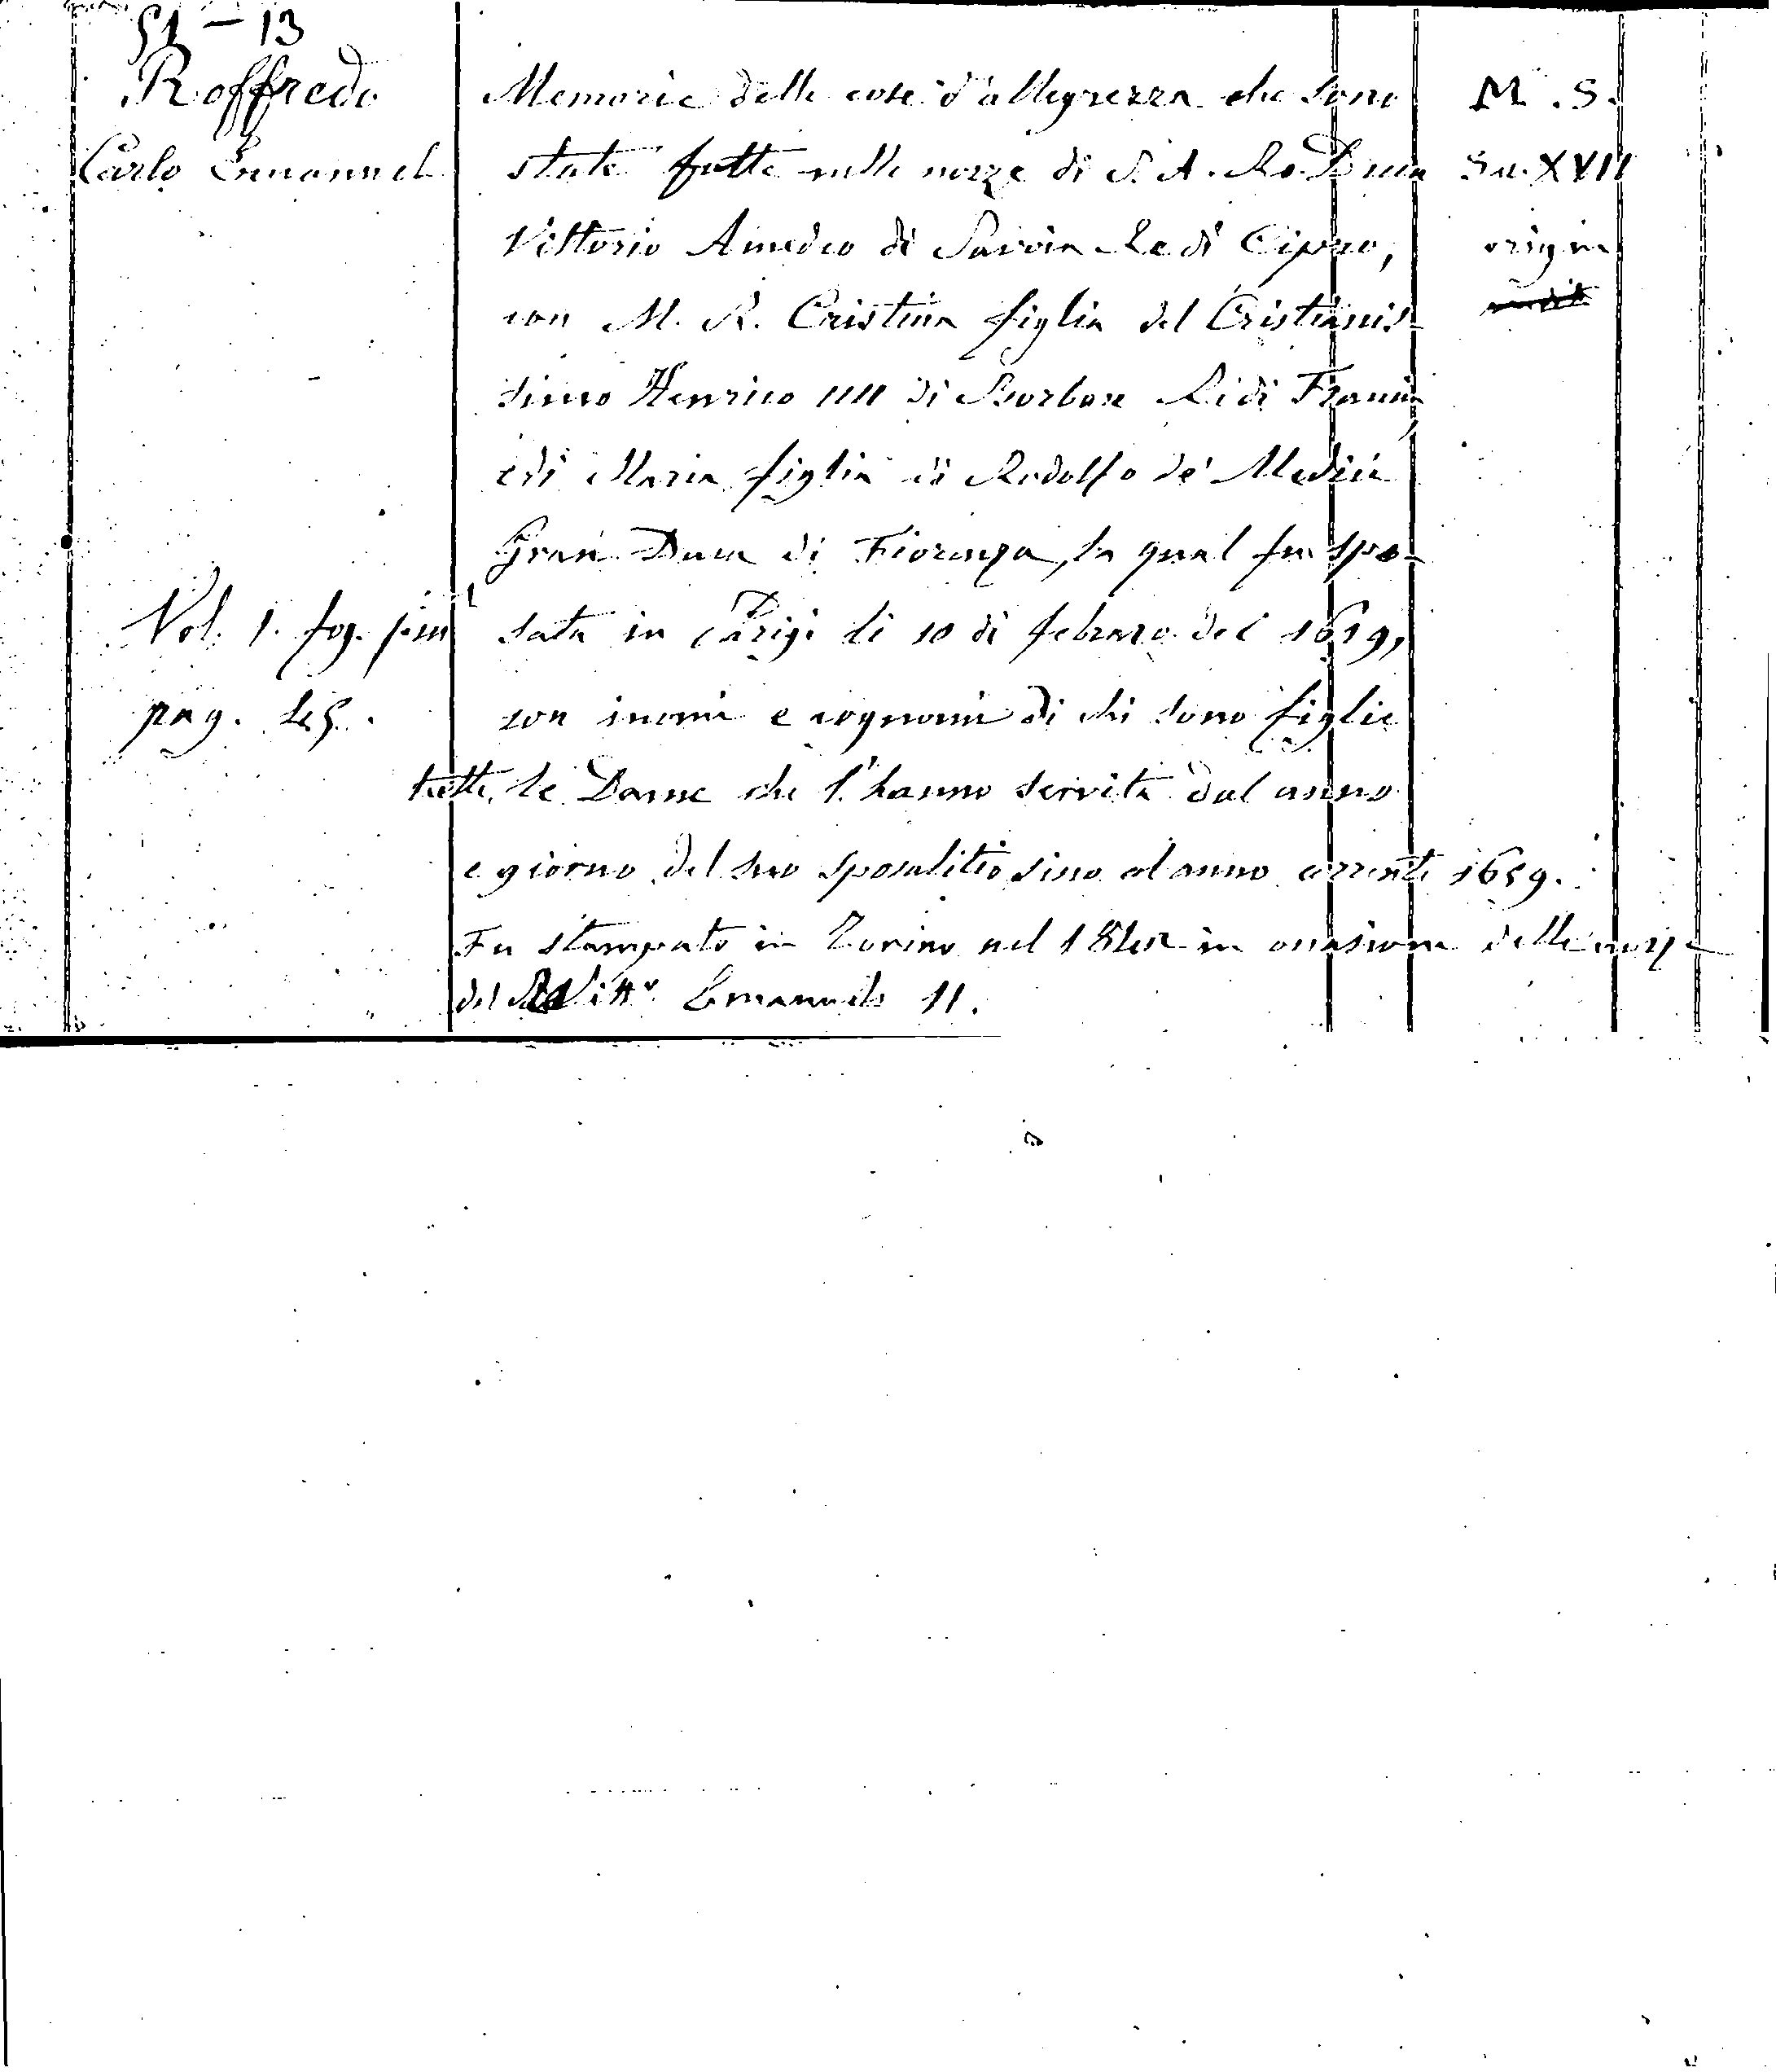 51 – 13
Roffredo
Carlo Emanuel
Vol. 1. fog.
pag.
Memorie delle cose d'allegrezza che sono
state fatte nelle nozze di S. A. Ro. Duca
Vittorio Amedeo di Savoia Re di Cipro,
con M. R. Cristina figlia del Cristianis-
simo Henrico IIII di Borbone Re di Francia
e di Maria figlia di Rodolfo de' Medici
Gran Duca di Fiorenza, la qual fu spo-
sata in Parigi li 10 di febraro del 1619,
con i nomi e cognomi di chi sono figlie
tutte le Dame che l'hanno servita dal anno
e giorno del suo sposalitio sino al anno corrente 1659.
Fu stampato in Torino nel 1842 in occasione delle nozze
del Vittº Emanuele II.
M. S.
Sec. XVII
origin